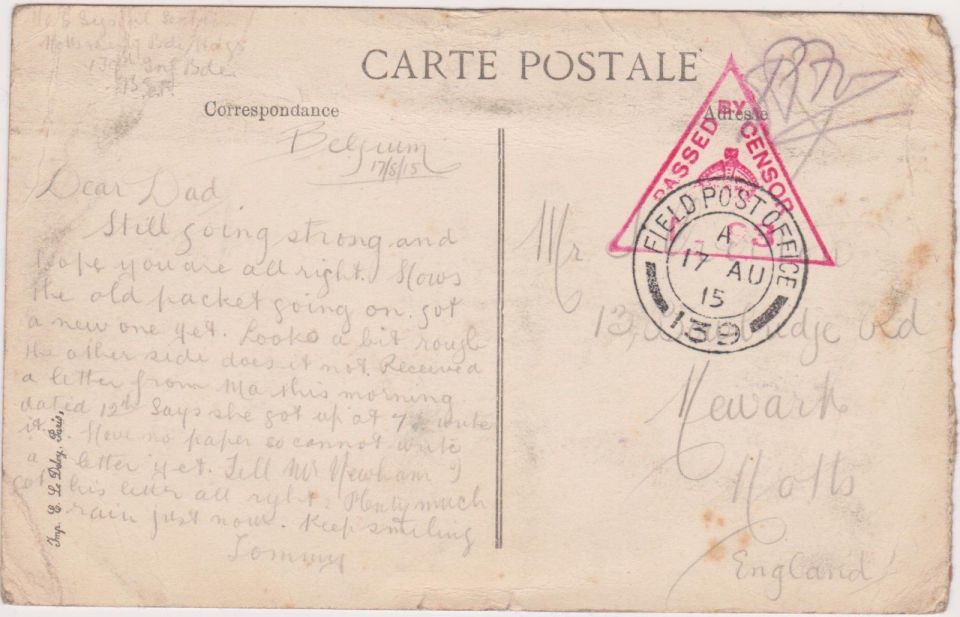 Notts
Inf Bde
B.E.F.
CARTE POSTALE
Correspondance
Adresse
PASSED BY CENSOR
FIELD POST OFFICE
A
17 AU
15
139
Belgium
17/8/15
Dear Dad
Still going strong and
hope you are all right. Hows
the old packet going on. got
a new one yet. Looks a bit rough
the other side does it not. Received
a letter from Ma this morning
dated 12th Says she got up at 7 to write
it. Have no paper so cannot write
a letter yet. Tell Mr Newham I
got his letter all right. Plenty much
rain just now. Keep smiling
Tommy
Mr
13, Rd
Newark
Notts
England
Imp. E. Le Deley, Paris.